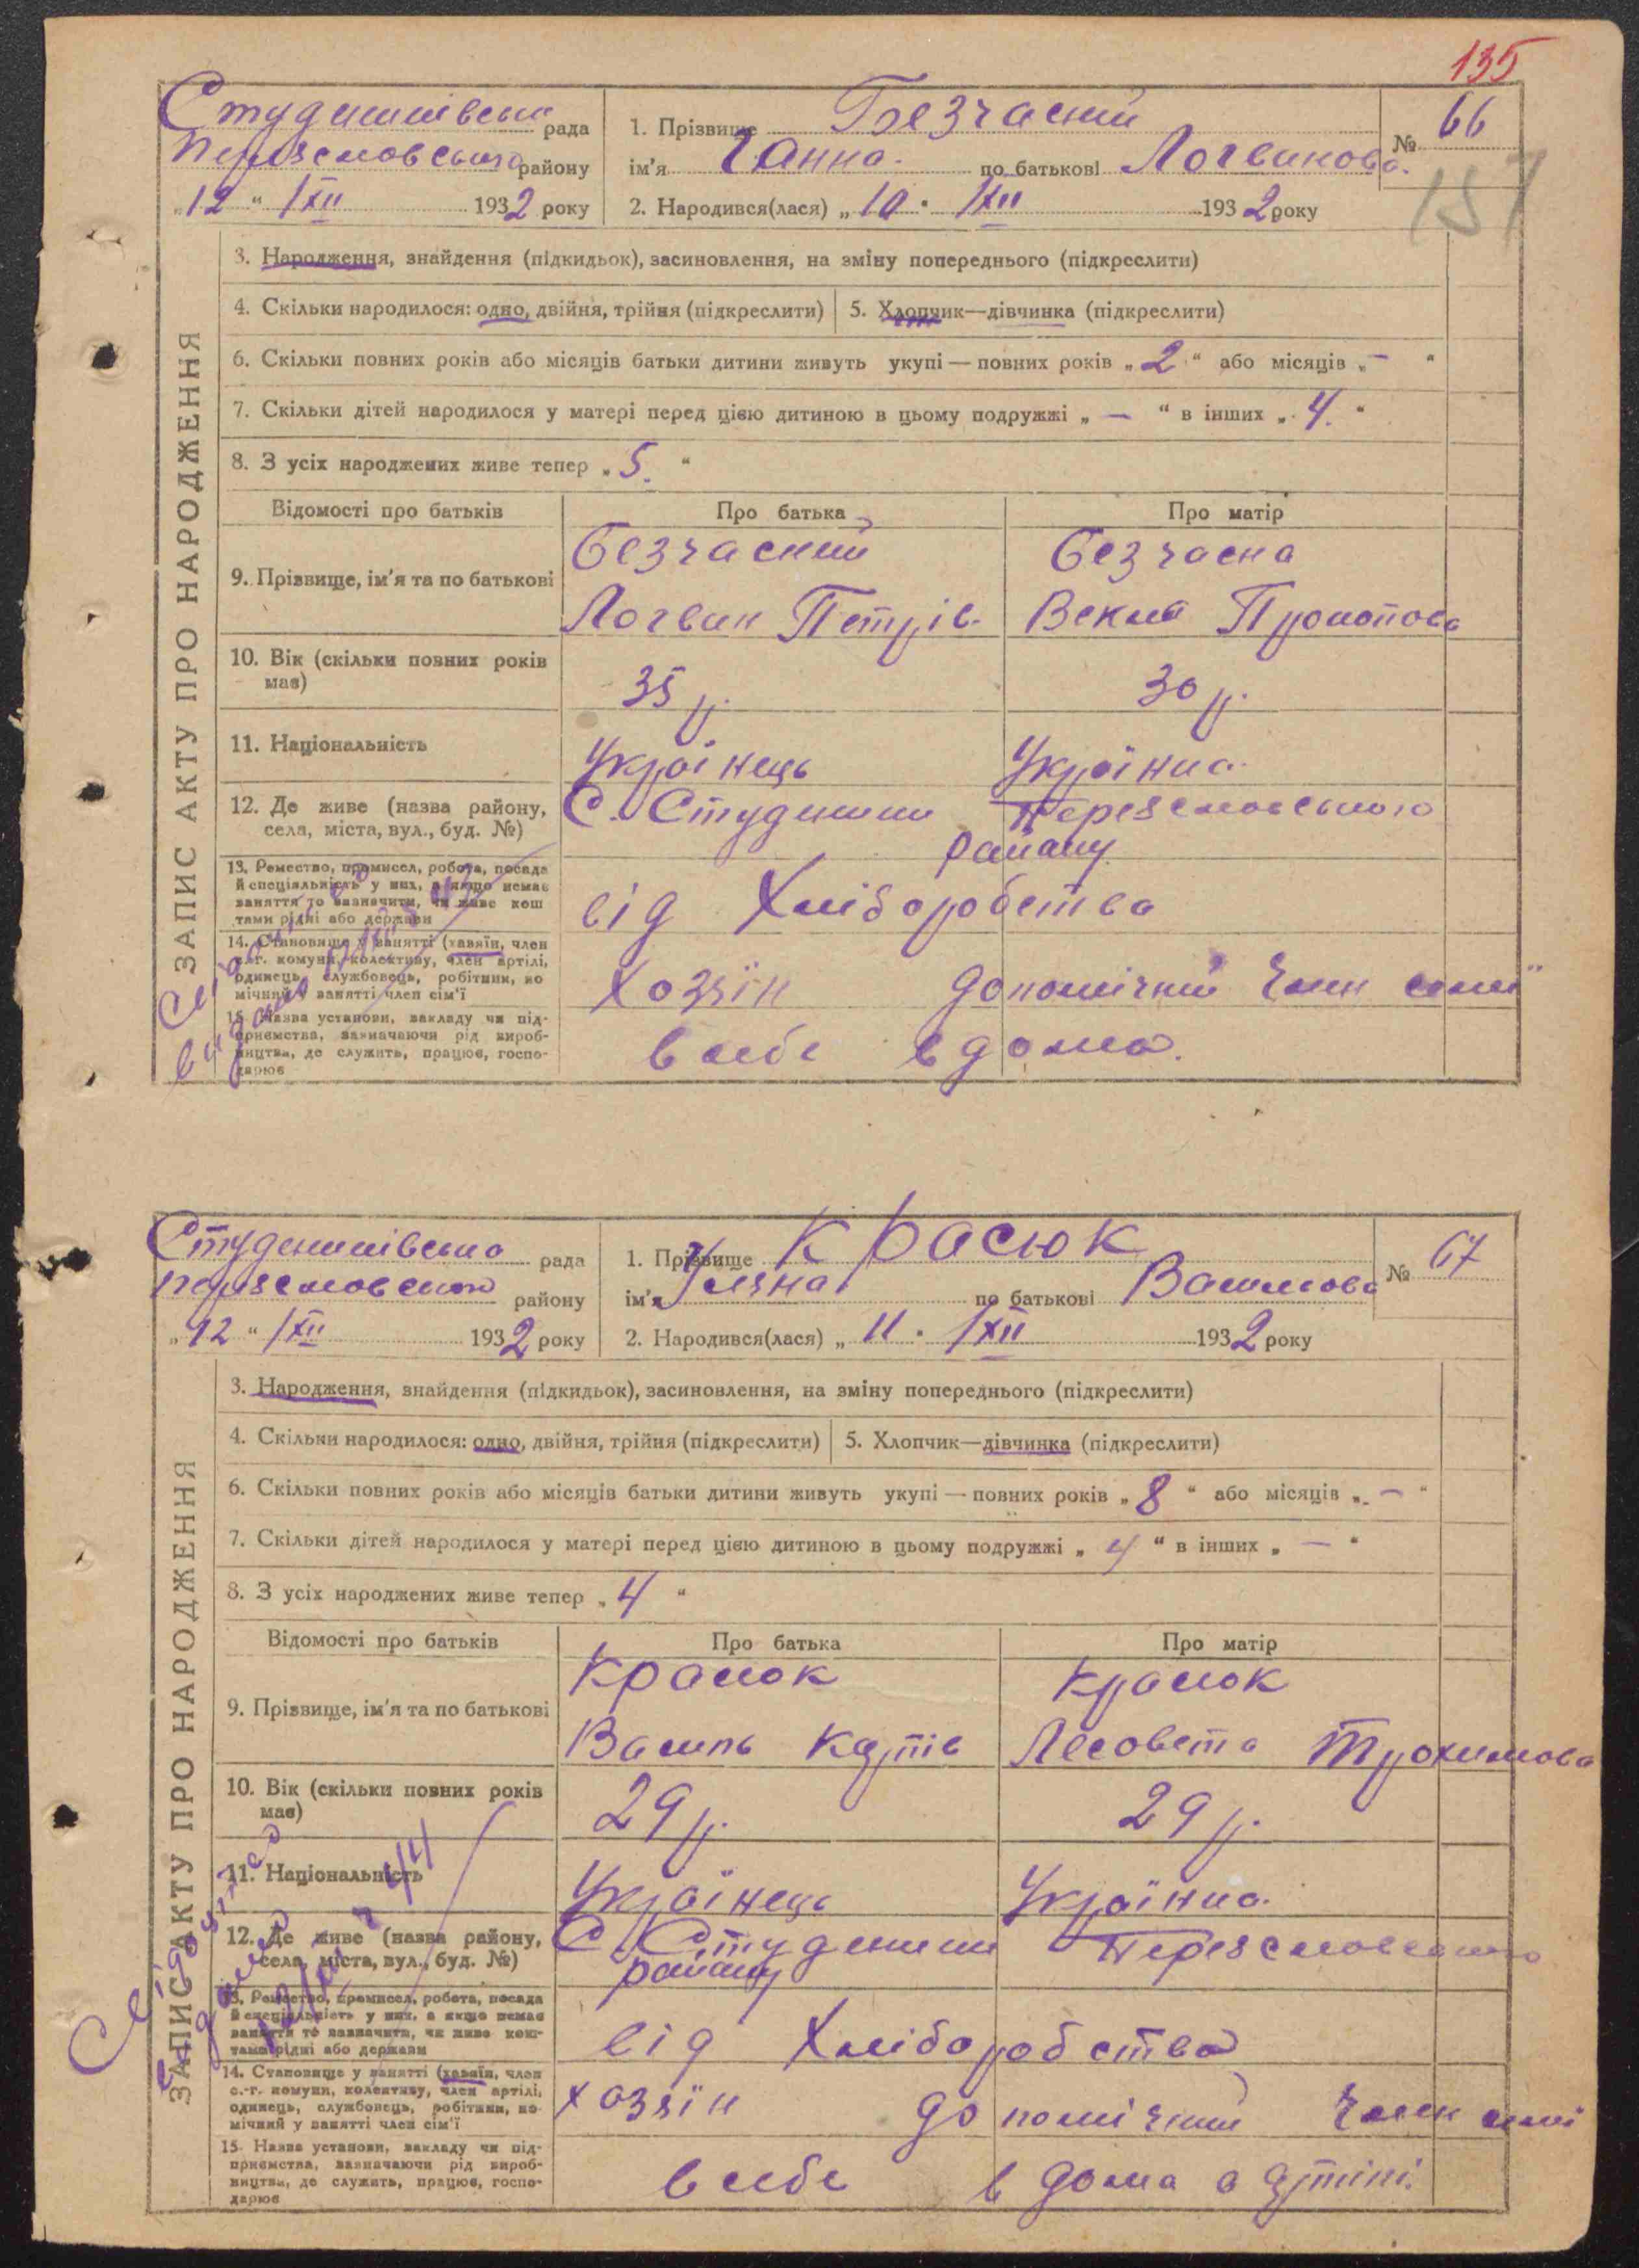 135
Студениківська рада
Переяславського району
„12“ /XII 1932 року
1. Прізвище Безчасний
ім'я Ганна по батькові Логвинова.
№ 66
157
2. Народився(лася) „10“ /XII 1932 року
ЗАПИС АКТУ ПРО НАРОДЖЕННЯ
3. Народження, знайдення (підкидьок), засиновлення, на зміну попереднього (підкреслити)
4. Скільки народилося: одно, двійня, трійня (підкреслити) 5. Хлопчик—дівчинка (підкреслити)
6. Скільки повних років або місяців батьки дитини живуть укупі — повних років „2“ або місяців „–“
7. Скільки дітей народилося у матері перед цією дитиною в цьому подружжі „—“ в інших „4.“
8. З усіх народжених живе тепер „5.“
Відомості про батьків Про батька Про матір
9. Прізвище, ім'я та по батькові
Безчасний Безчасна
Логвин Петрів. Векла
10. Вік (скільки повних років має)
35 р. 30 р.
11. Національність Українець Українка
12. Де живе (назва району, села, міста, вул., буд. №)
С. Студеники Переяславського
району
13. Ремество, промисел, робота, посада й спеціяльність у них, а якщо немає заняття то зазначити, чи живе коштами рідні або держави
від Хліборобства
14. Становище у занятті (хазяїн, член с.-г. комуни, колективу, член артілі, одинець, службовець, робітник, помічний у занятті член сім'ї
Хозяїн допомічний член семї
15. Назва установи, закладу чи підприємства, зазначаючи рід виробництва, де служить, працює, господарює
в себе в дома.
Студениківська рада
Переяславського району
„12“ /XII 1932 року
1. Прізвище Красюк
ім'я Уляна по батькові Василева
№ 67
2. Народився(лася) „11“ /XII 1932 року
ЗАПИС АКТУ ПРО НАРОДЖЕННЯ
3. Народження, знайдення (підкидьок), засиновлення, на зміну попереднього (підкреслити)
4. Скільки народилося: одно, двійня, трійня (підкреслити) 5. Хлопчик—дівчинка (підкреслити)
6. Скільки повних років або місяців батьки дитини живуть укупі — повних років „8“ або місяців „–“
7. Скільки дітей народилося у матері перед цією дитиною в цьому подружжі „4“ в інших „—“
8. З усіх народжених живе тепер „4“
Відомості про батьків Про батька Про матір
9. Прізвище, ім'я та по батькові
Красюк Красюк
Василь Лесовета Трохимова
10. Вік (скільки повних років має)
29 р. 29 р.
11. Національність Українець Українка
12. Де живе (назва району, села, міста, вул., буд. №)
С. Студеники Переяславського
району
13. Ремество, промисел, робота, посада й спеціяльність у них, а якщо немає заняття то зазначити, чи живе коштами рідні або держави
від Хліборобства
14. Становище у занятті (хазяїн, член с.-г. комуни, колективу, член артілі, одинець, службовець, робітник, помічний у занятті член сім'ї
хозяїн допомічний член семї
15. Назва установи, закладу чи підприємства, зазначаючи рід виробництва, де служить, працює, господарює
в себе в дома